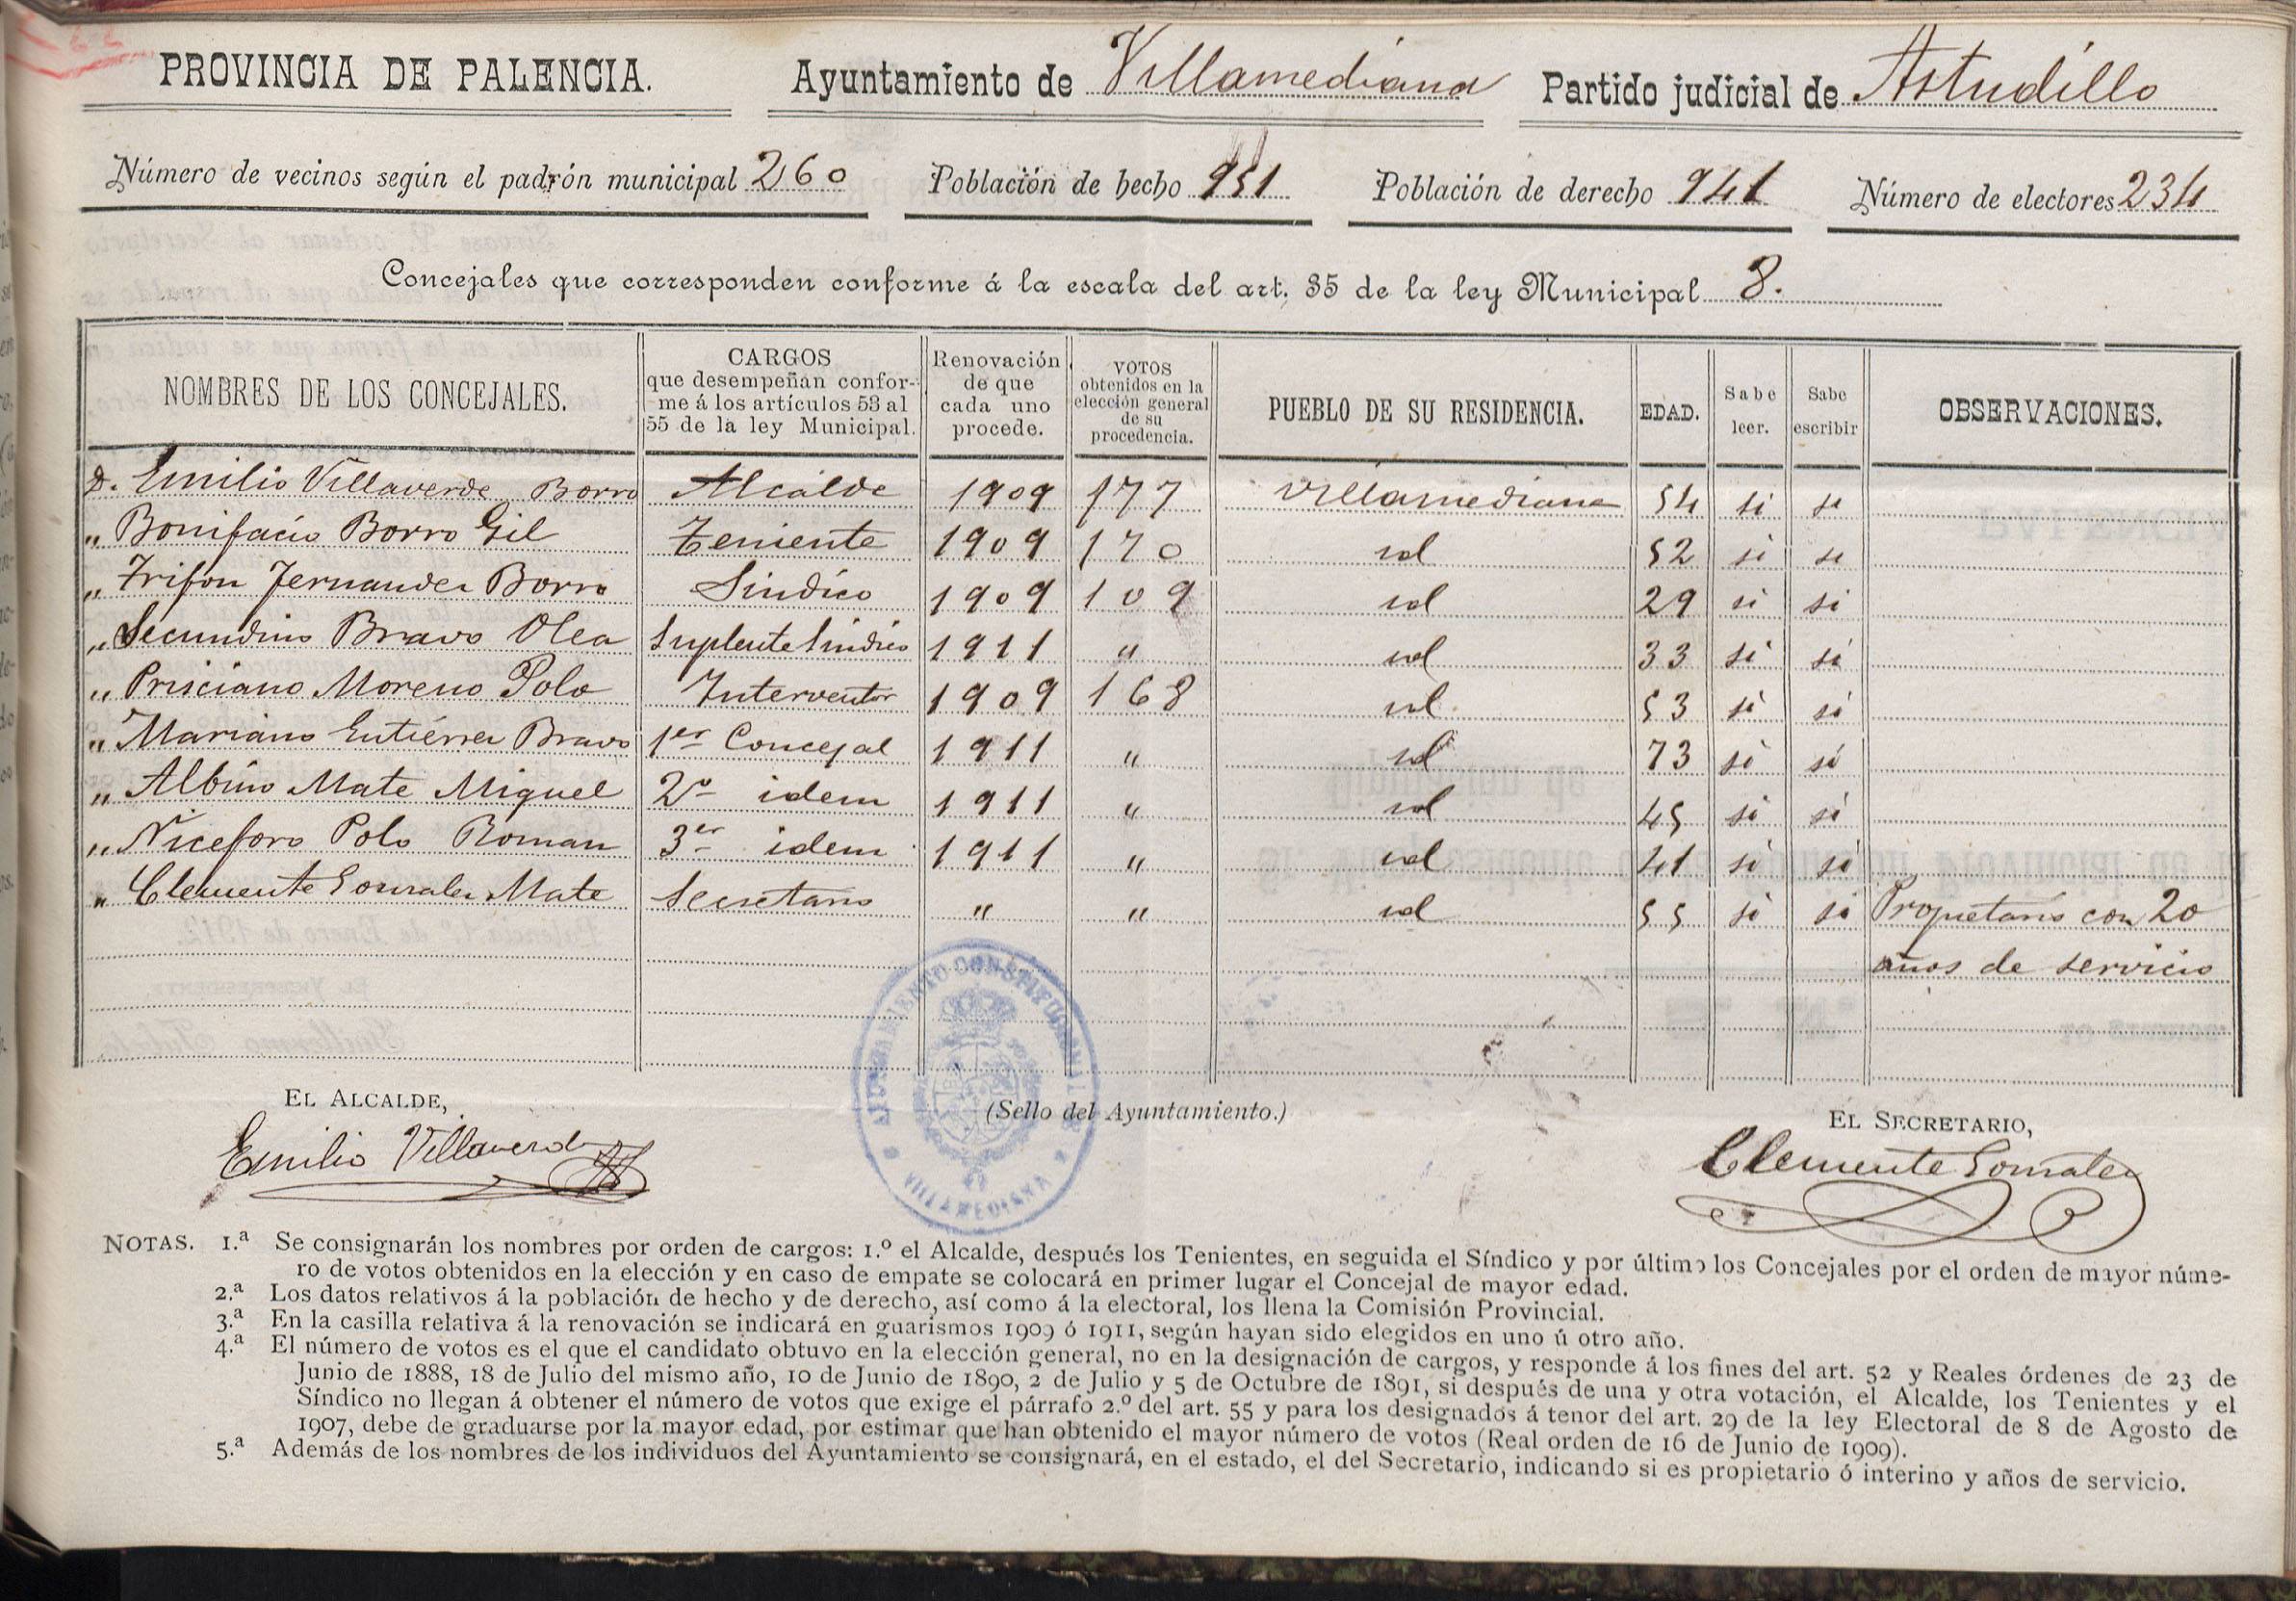 PROVINCIA DE PALENCIA. Ayuntamiento de Villamediana Partido judicial de Astudillo
Número de vecinos según el padrón municipal 260 Población de hecho 951 Población de derecho 941 Número de electores 234
Concejales que corresponden conforme á la escala del art. 35 de la ley Municipal 8.
NOMBRES DE LOS CONCEJALES. CARGOS que desempeñan confor- me á los artículos 53 al 55 de la ley Municipal. Renovación de que cada uno procede. VOTOS obtenidos en la elección general de su procedencia. PUEBLO DE SU RESIDENCIA. EDAD. Sabe leer. Sabe escribir OBSERVACIONES.
D. Emilio Villaverde Borro Alcalde 1909 177 Villamediana 54 si si
„ Bonifacio Borro Gil Teniente 1909 170 id 52 si si
„ Trifon Fernandez Borro Sindico 1909 109 id 29 si si
„ Secundino Bravo Olea Suplente Sindico 1911 „ id 33 si si
„ Prisciano Moreno Polo Interventor 1909 168 id 53 si si
„ Mariano Gutiérrez Bravo 1er Concejal 1911 „ id 73 si si
„ Albino Mate Miguel 2º idem 1911 „ id 45 si si
„ Niceforo Polo Roman 3er idem 1911 „ id 41 si si
„ Clemente Gonzalez Mate Secretario „ „ id 55 si si Propietario con 20
años de servicio
EL ALCALDE,
(Sello del Ayuntamiento.)
EL SECRETARIO,
Emilio Villaverde
Clemente Gonzalez
AYUNTAMIENTO CONSTITUCIONAL DE VILLAMEDIANA
NOTAS. 1.ª Se consignarán los nombres por orden de cargos: 1.º el Alcalde, después los Tenientes, en seguida el Síndico y por último los Concejales por el orden de mayor núme-
ro de votos obtenidos en la elección y en caso de empate se colocará en primer lugar el Concejal de mayor edad.
2.ª Los datos relativos á la población de hecho y de derecho, así como á la electoral, los llena la Comisión Provincial.
3.ª En la casilla relativa á la renovación se indicará en guarismos 1909 ó 1911, según hayan sido elegidos en uno ú otro año.
4.ª El número de votos es el que el candidato obtuvo en la elección general, no en la designación de cargos, y responde á los fines del art. 52 y Reales órdenes de 23 de
Junio de 1888, 18 de Julio del mismo año, 10 de Junio de 1890, 2 de Julio y 5 de Octubre de 1891, si después de una y otra votación, el Alcalde, los Tenientes y el
Síndico no llegan á obtener el número de votos que exige el párrafo 2.º del art. 55 y para los designados á tenor del art. 29 de la ley Electoral de 8 de Agosto de
1907, debe de graduarse por la mayor edad, por estimar que han obtenido el mayor número de votos (Real orden de 16 de Junio de 1909).
5.ª Además de los nombres de los individuos del Ayuntamiento se consignará, en el estado, el del Secretario, indicando si es propietario ó interino y años de servicio.